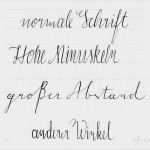 normale Schrift
Hohe Minuskeln
großer Abstand
anderer Winkel